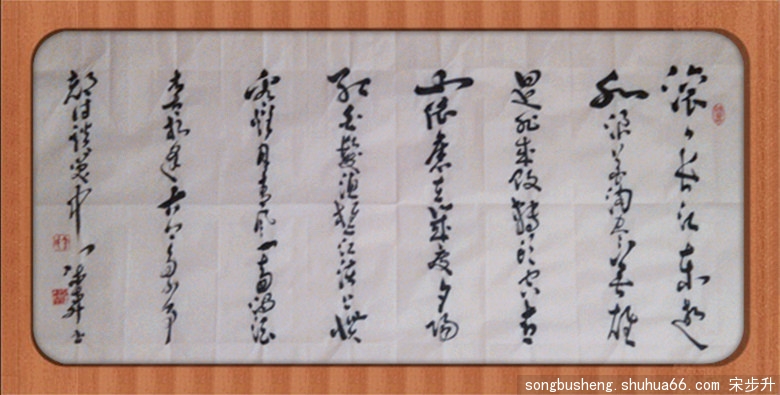 滚々长江东逝
水浪花淘尽英雄
是非成败转头空青
山依旧在几度夕阳
红白发渔樵江渚上惯
看秋月春风一壶浊酒
喜相逢古今多少事
都付谈笑中 步升书
songbusheng.shuhua66.com 宋步升